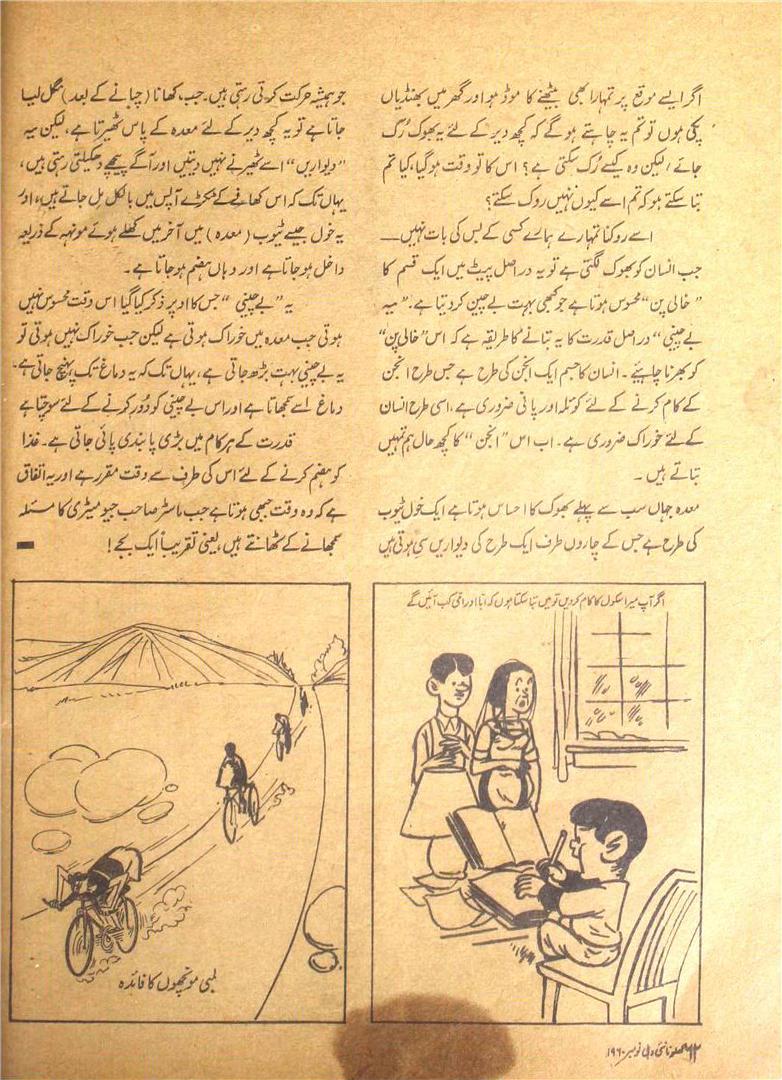 اگر ایسے موقع پر تمہارا بھی بیٹھنے کا موڈ ہو اور گھر میں بھنڈیاں
پکی ہوں تو تم یہ چاہتے ہو گے کہ کچھ دیر کے لئے یہ بھوک رُک
جائے، لیکن وہ کیسے رُک سکتی ہے؟ اس کا تو وقت ہو گیا، کیا تم
بتا سکتے ہو کہ تم اسے کیوں نہیں روک سکتے؟
اسے روکنا تمہارے ہمارے کسی کے بس کی بات نہیں—
جب انسان کو بھوک لگتی ہے تو یہ دراصل پیٹ میں ایک قسم کا
”خالی پن“ محسوس ہوتا ہے جو کبھی بہت بے چین کر دیتا ہے۔ ”یہ
بے چینی“ دراصل قدرت کا یہ بتانے کا طریقہ ہے کہ اس ”خالی پن“
کو بھرنا چاہیئے۔ انسان کا جسم ایک انجن کی طرح ہے جس طرح انجن
کے کام کرنے کے لئے کوئلہ اور پانی ضروری ہے، اسی طرح انسان
کے لئے خوراک ضروری ہے۔ اب اس ”انجن“ کا کچھ حال ہم تمہیں
بتاتے ہیں۔
معدہ جہاں سب سے پہلے بھوک کا احساس ہوتا ہے ایک خول ٹیوب
کی طرح ہے جس کے چاروں طرف ایک طرح کی دیواریں سی ہوتی ہیں
جو ہمیشہ حرکت کرتی رہتی ہیں۔ جب کھانا (چبانے کے بعد) نگل لیا
جاتا ہے تو یہ کچھ دیر کے لئے معدہ کے پاس ٹھیرتا ہے، لیکن یہ
”دیواریں“ اسے ٹھیرنے نہیں دیتیں اور آگے پیچھے دھکیلتی رہتی ہیں،
یہاں تک کہ اس کھانے کے ٹکڑے آپس میں بالکل مل جاتے ہیں، اور
یہ خول جیسے ٹیوب (معدہ) میں آخر میں کھلے ہوئے مونہہ کے ذریعہ
داخل ہو جاتا ہے اور وہاں ہضم ہو جاتا ہے۔
یہ ”بے چینی“ جس کا اوپر ذکر کیا گیا اس وقت محسوس نہیں
ہوتی جب معدہ میں خوراک ہوتی ہے لیکن جب خوراک نہیں ہوتی تو
یہ بے چینی بہت بڑھ جاتی ہے، یہاں تک کہ یہ دماغ تک پہنچ جاتی ہے۔
دماغ اسے سمجھاتا ہے اور اس بے چینی کو دُور کرنے کے لئے سوچتا ہے
قدرت کے ہر کام میں بڑی پابندی پائی جاتی ہے۔ غذا
کو ہضم کرنے کے لئے اس کی طرف سے وقت مقرر ہے اور یہ اتفاق
ہے کہ وہ وقت جبھی ہوتا ہے جب ماسٹر صاحب جیومیٹری کا مسئلہ
سمجھانے کے ٹھانتے ہیں، یعنی تقریباً ایک بجے!
اگر آپ میرا سکول کا کام کر دیں تو میں بتا سکتا ہوں کہ ابا اور امی کب آئیں گے
لمبی مونچھوں کا فائدہ
نئی دہلی نومبر ۱۹۶۰ء